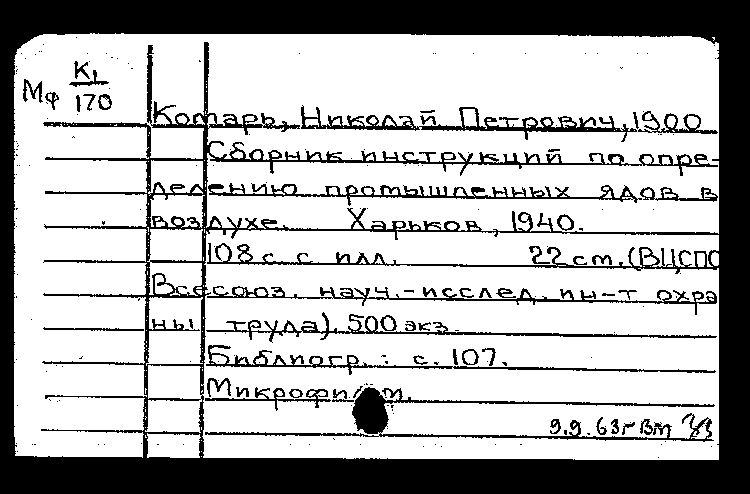 Мф К1/170
Комарь, Николай Петрович, 1900
Сборник инструкций по опре-
делению промышленных ядов в
воздухе. Харьков, 1940.
108 с. с илл. 22 см. (ВЦСПС
Всесоюз. науч.-исслед. ин-т охра
ны труда). 500 экз.
Библиогр.: с. 107.
Микрофильм.
9.9.63г ВМ